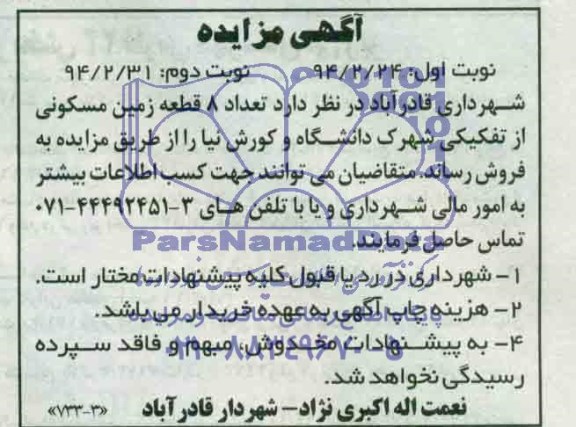 آگهی مزایده
نوبت اول: ۹۴/۲/۲۴ نوبت دوم: ۹۴/۲/۳۱
شهرداری قادرآباد در نظر دارد تعداد ۸ قطعه زمین مسکونی
از تفکیکی شهرک دانشگاه و کورش نیا را از طریق مزایده به
فروش رساند. متقاضیان می توانند جهت کسب اطلاعات بیشتر
به امور مالی شهرداری و یا با تلفن های ۳-۴۴۴۹۲۴۵۱-۰۷۱
تماس حاصل فرمایند.
ParsNamadData
۱- شهرداری در رد یا قبول کلیه پیشنهادات مختار است.
۲- هزینه چاپ آگهی به عهده خریدار می باشد.
۴- به پیشنهادات مخدوش، مبهم و فاقد سپرده
۰۲۱-۸۸۳۴۹۶۷۰-۵
رسیدگی نخواهد شد.
نعمت اله اکبری نژاد- شهردار قادرآباد «۳-۷۳۳»